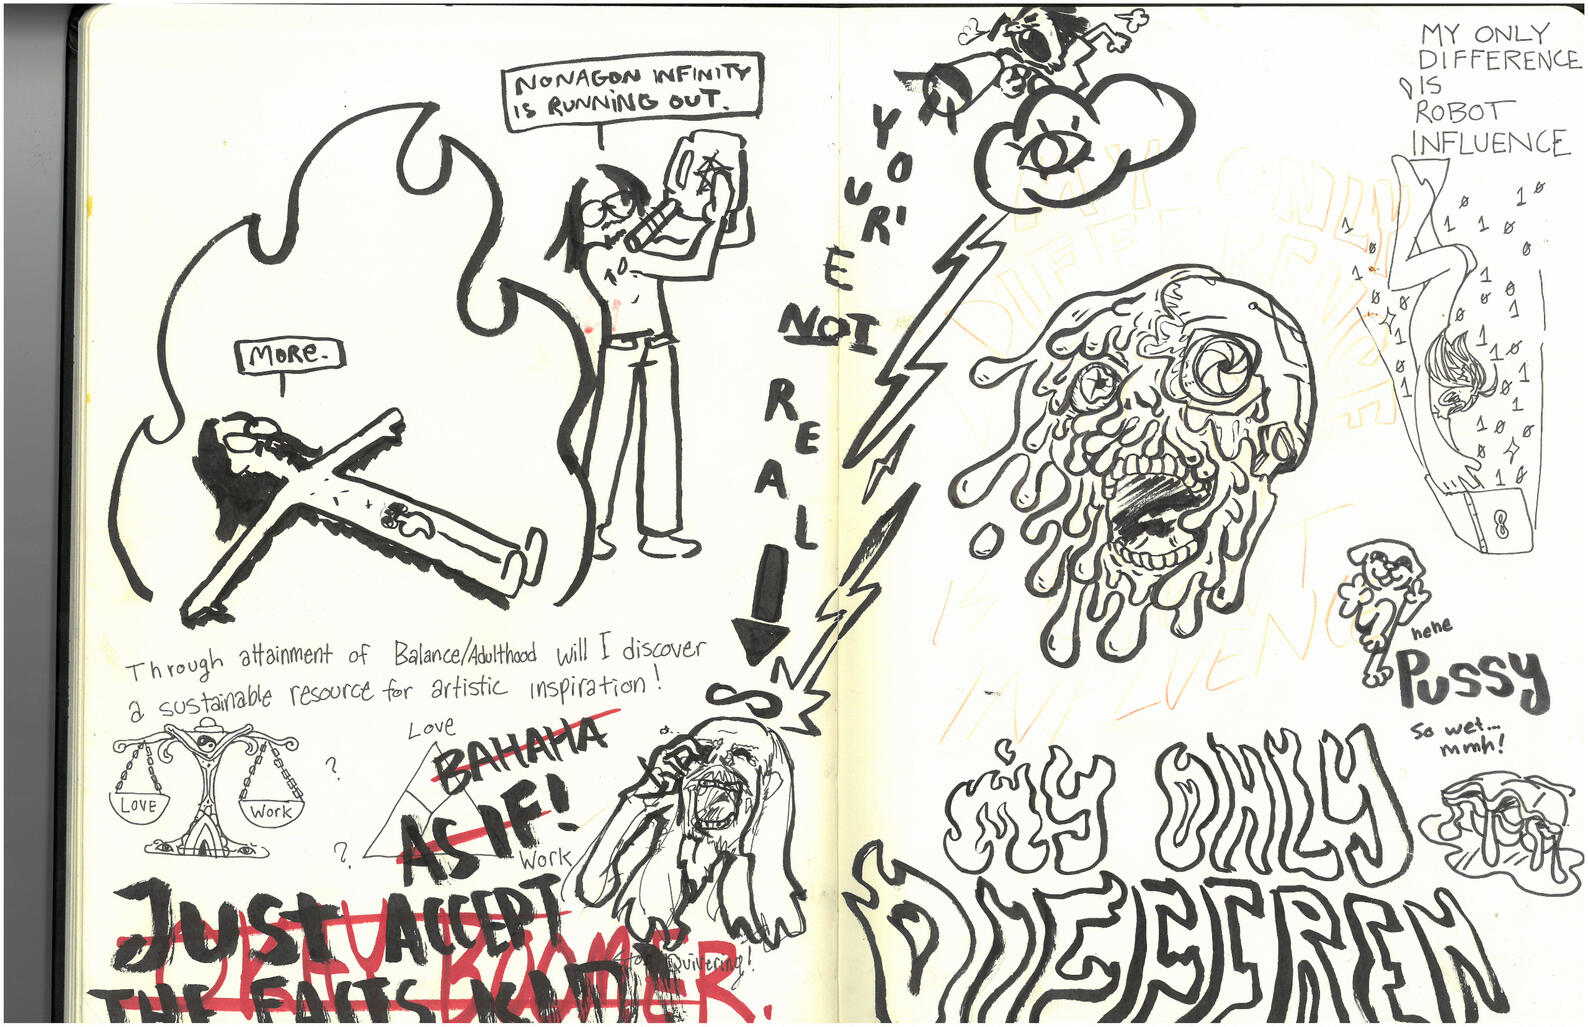 NONAGON INFINITY
IS RUNNING OUT.
MORE.
Through attainment of Balance/Adulthood will I discover
a sustainable resource for artistic inspiration!
LOVE
Work
?
?
Love
Work
BAHAHA
AS IF!
JUST ACCEPT
THE FACTS KID!
OKAY BOOMER.
Stop Quivering!
YOU'RE
NOT
REAL
MY ONLY
DIFFERENCE
IS
ROBOT
INFLUENCE
MY ONLY
DIFFERENCE
IS
INFLUENCE
1 0
0
1
1 0
0
1
1
0
8
hehe
Pussy
So wet...
mmh!
MY ONLY
DIFFEREN